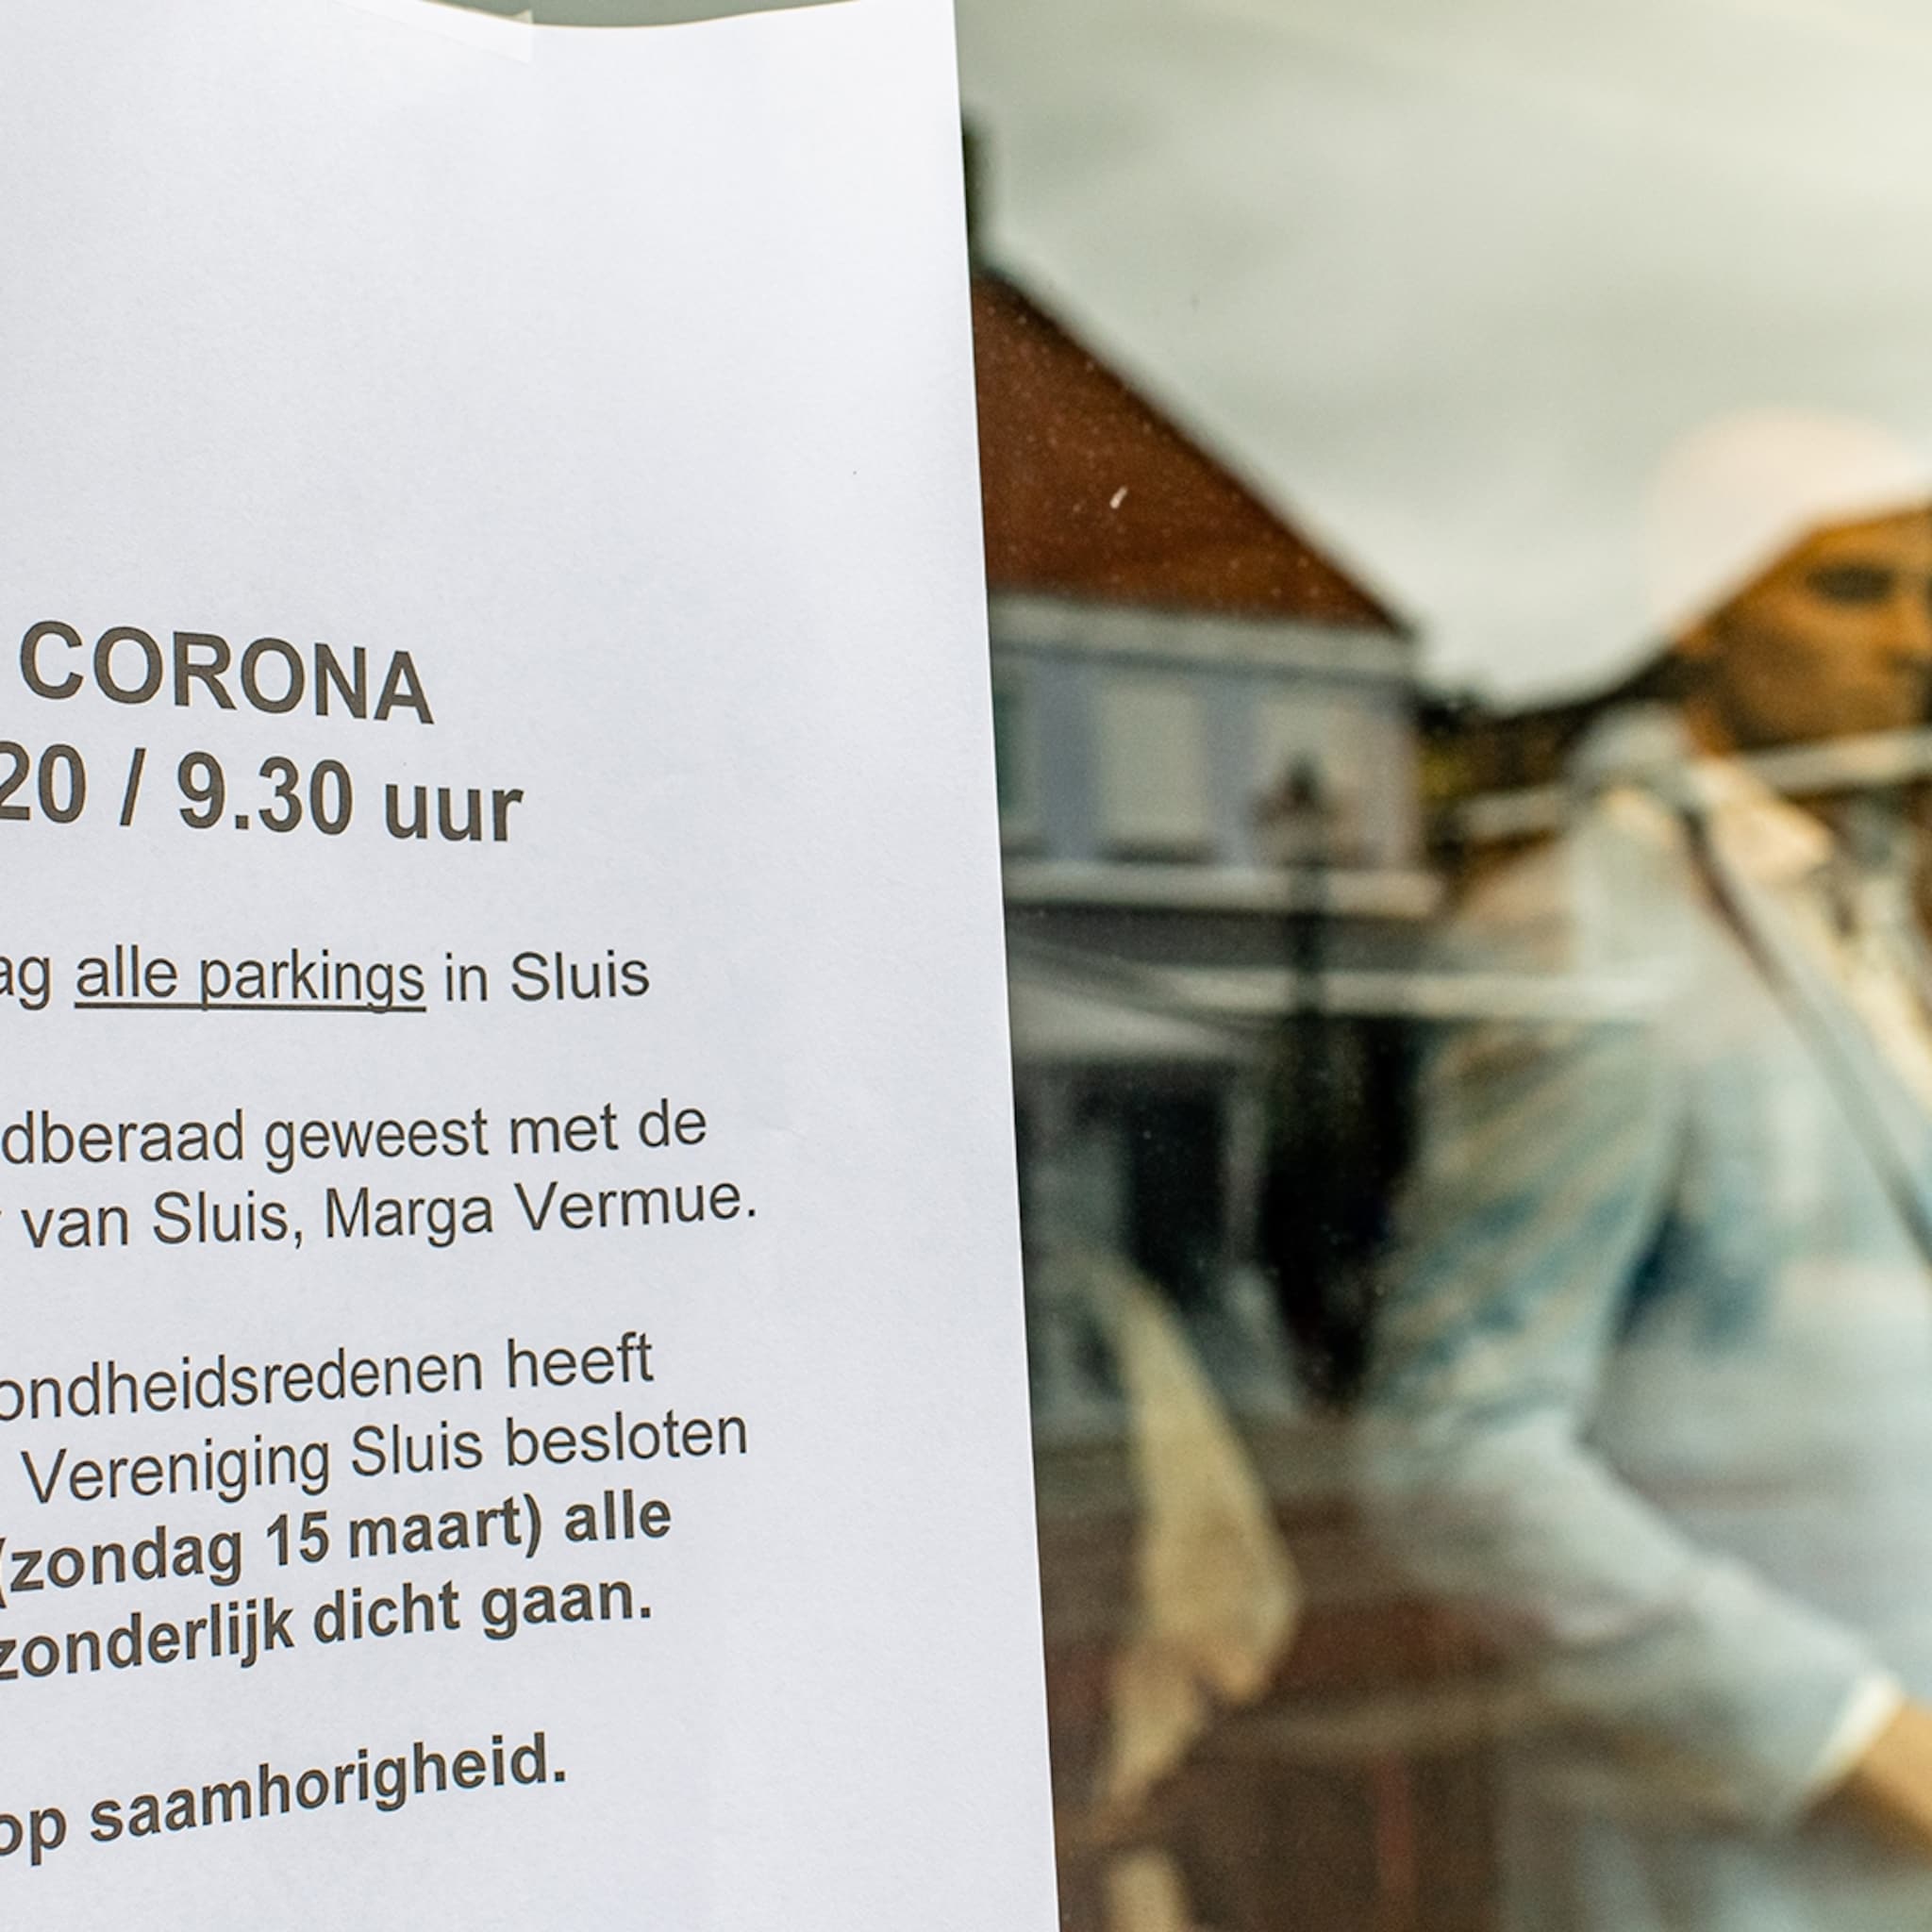 CORONA
20 / 9.30 uur
ag alle parkings in Sluis
dberaad geweest met de
van Sluis, Marga Vermue.
ondheidsredenen heeft
Vereniging Sluis besloten
(zondag 15 maart) alle
zonderlijk dicht gaan.
op saamhorigheid.